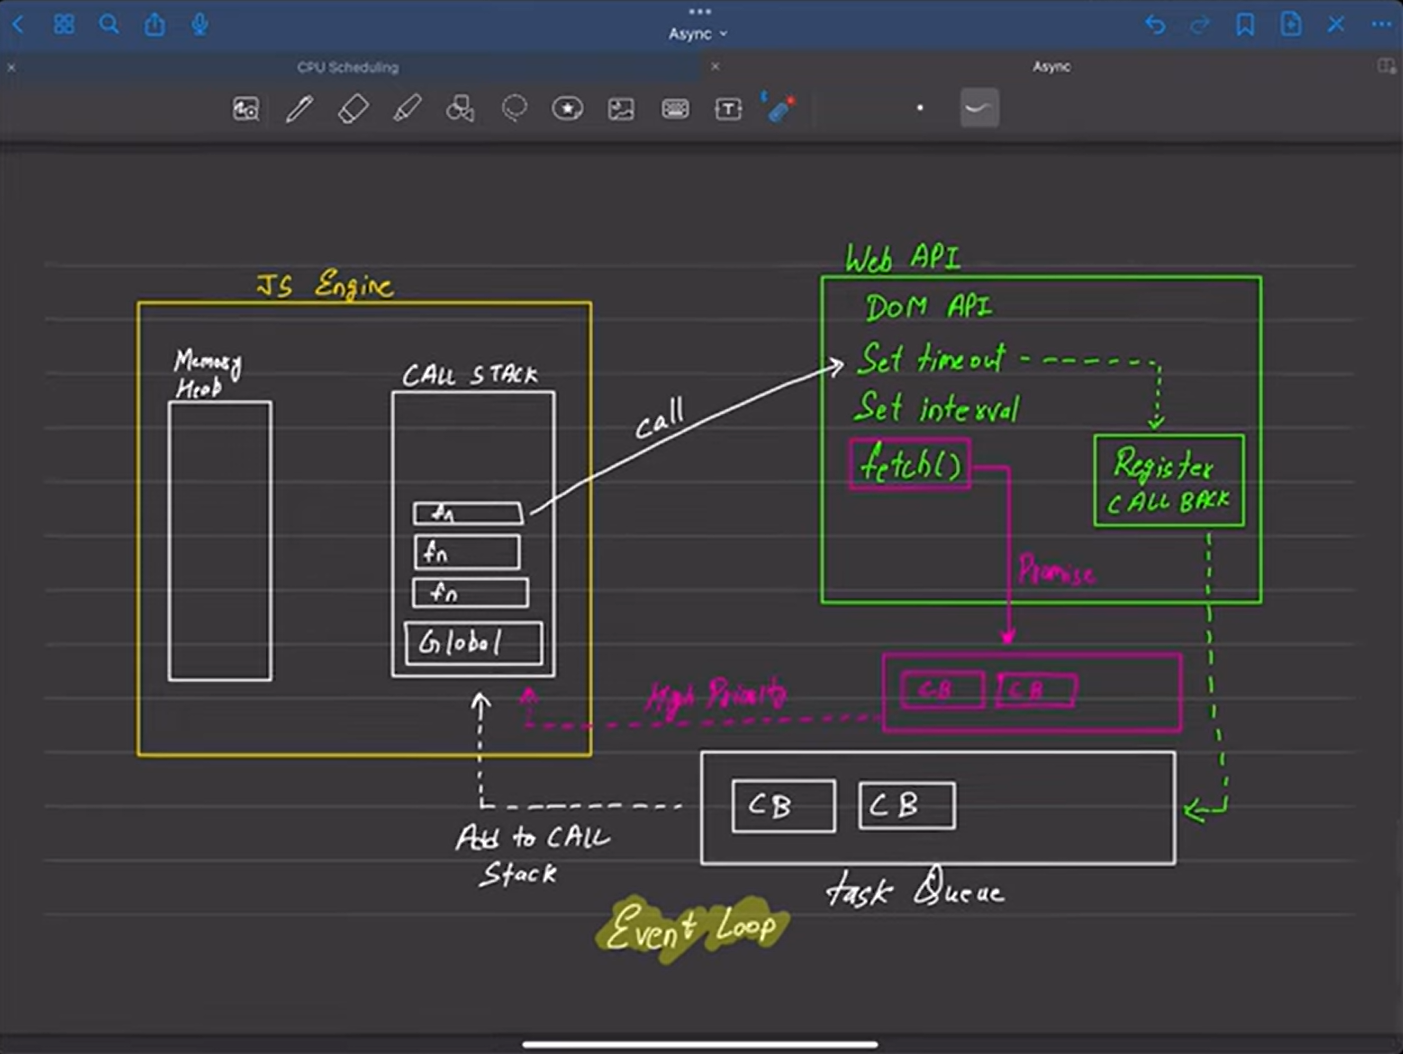 Async
CPU Scheduling
Async
T
JS Engine
Memory
Heap
CALL STACK
fn
fn
fn
Global
call
Web API
DOM API
Set timeout
Set interval
fetch()
Register
CALL BACK
Promise
CB CB
High Priority
CB CB
Add to CALL
Stack
task Queue
Event Loop